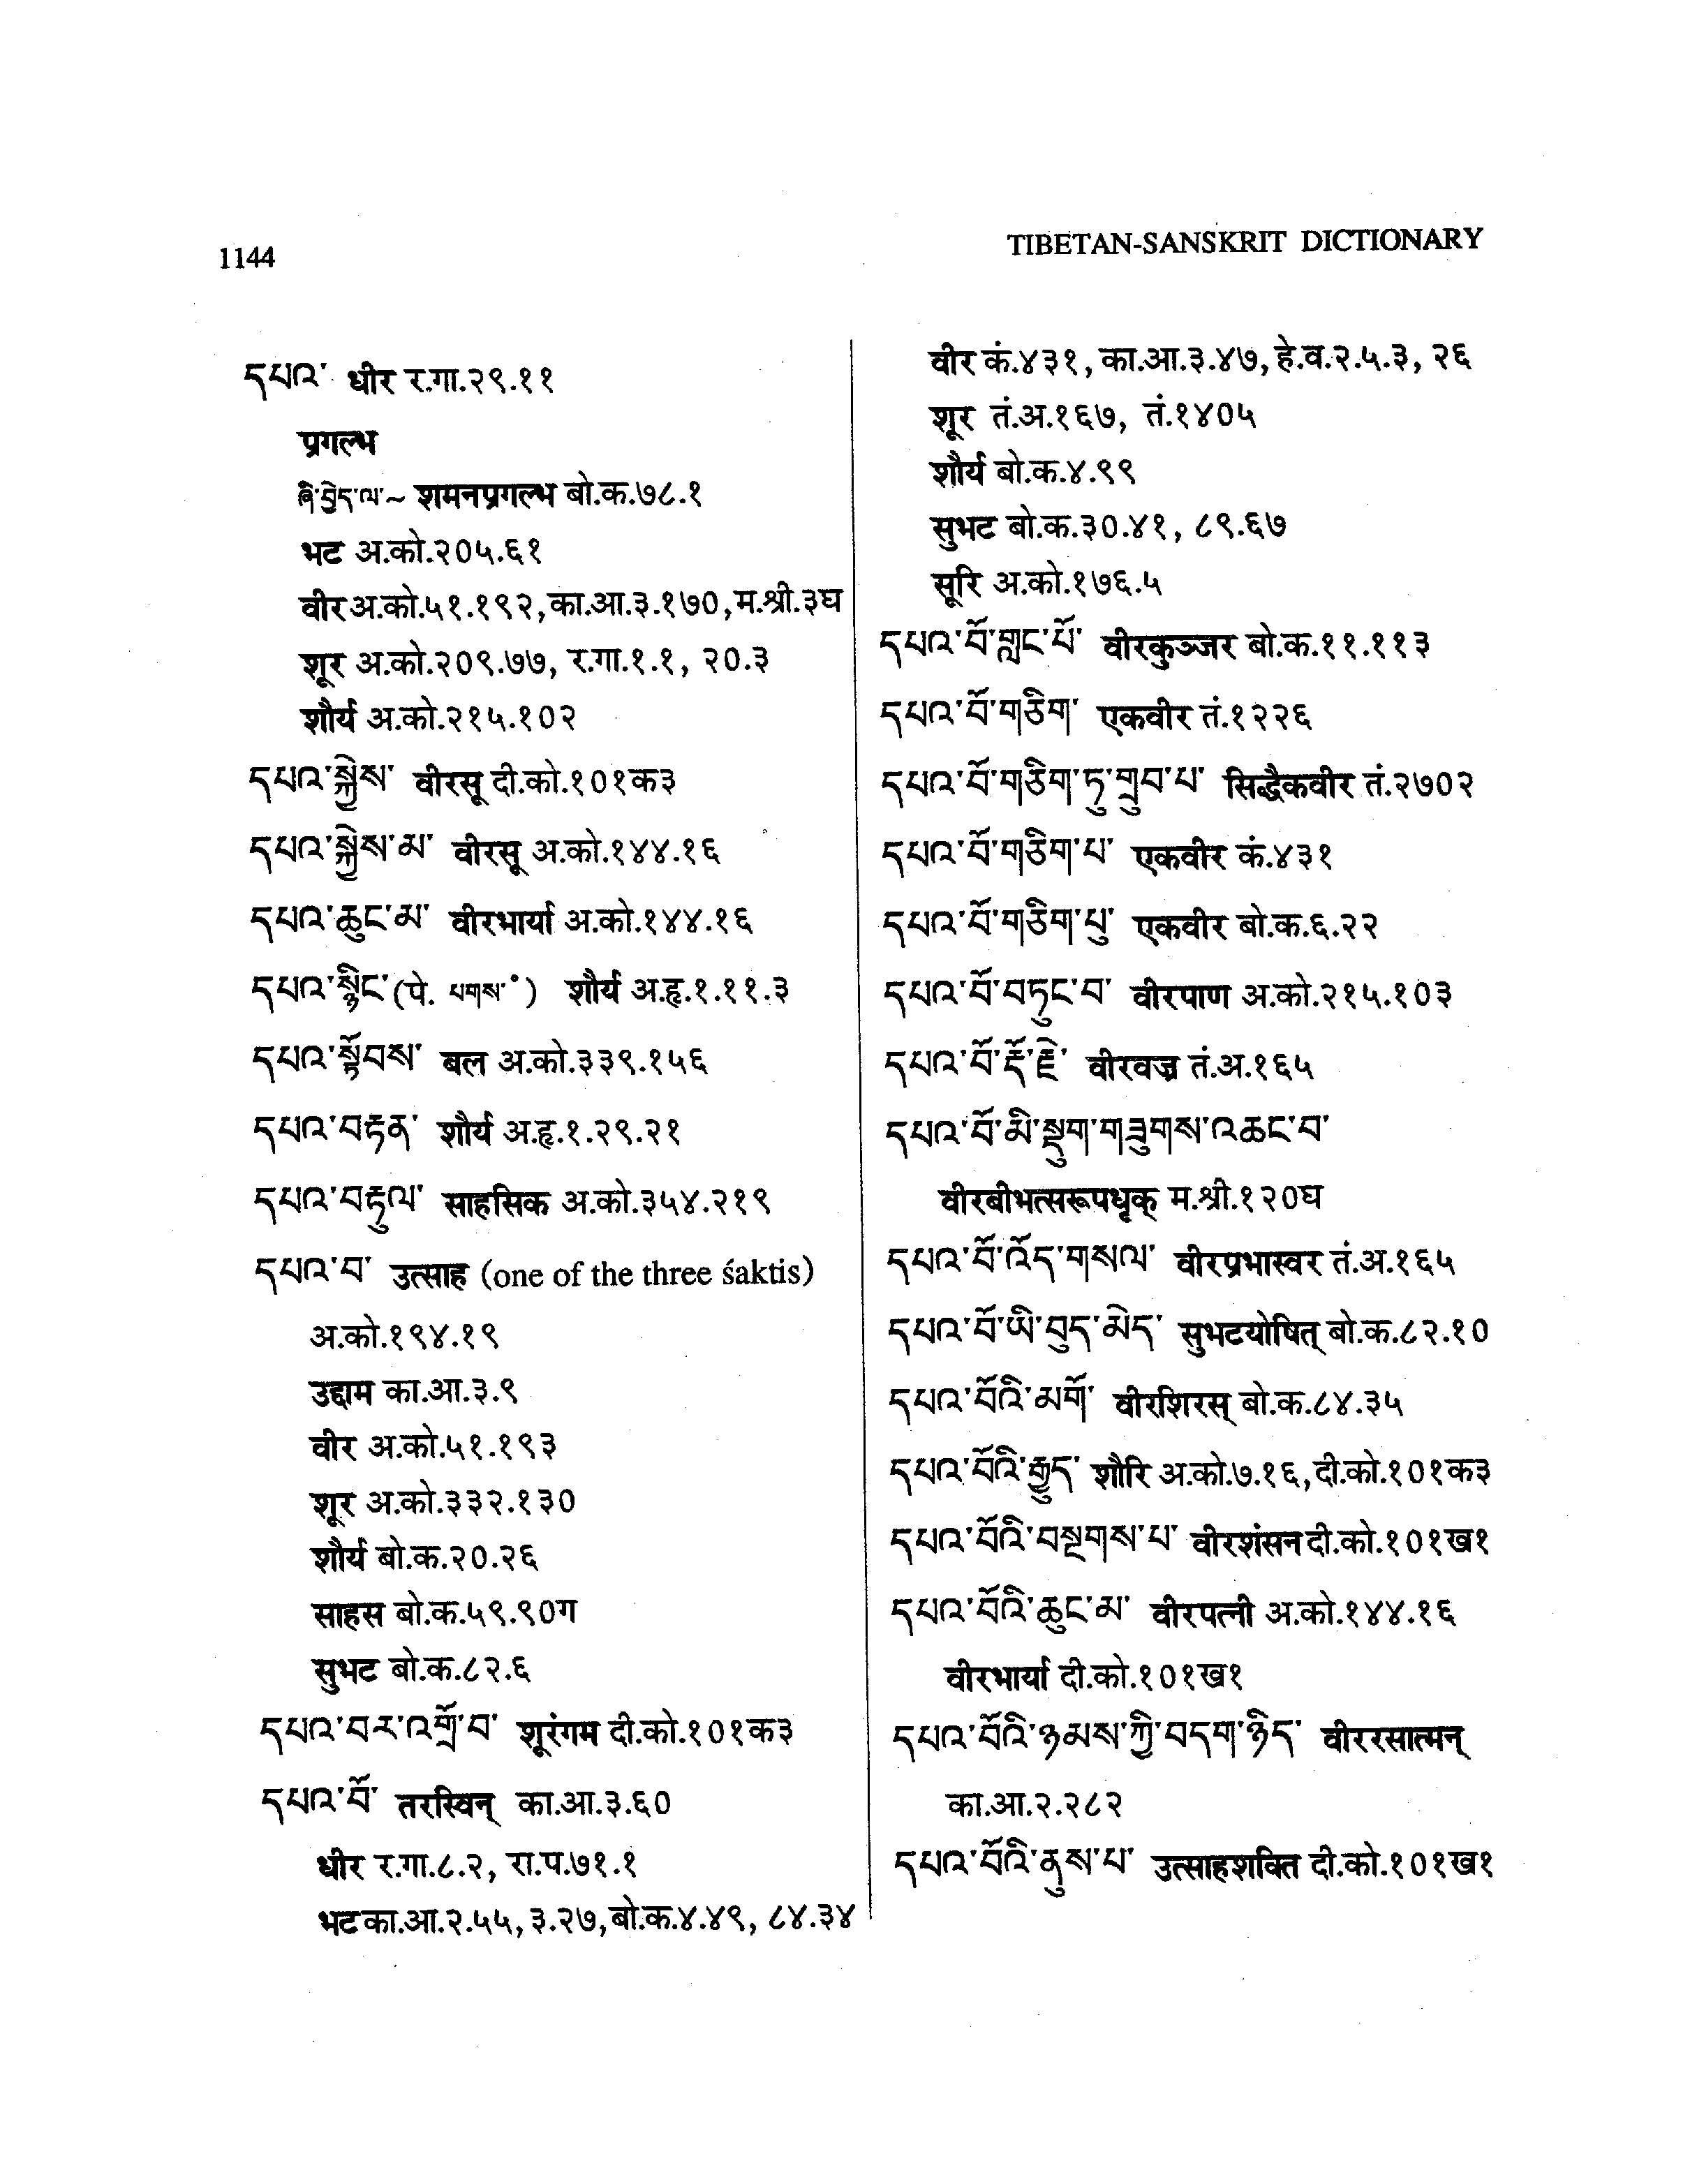 1144
TIBETAN-SANSKRIT DICTIONARY
དཔའ་ धीर र.गा.२९.११
प्रगल्भ
ཞི་བྱེད་ལ་~ शमनप्रगल्भ बो.क.७८.१
भट अ.को.२०५.६१
वीर अ.को.५१.१९२, का.आ.३.१७०, म.श्री.३घ
शूर अ.को.२०९.७७, र.गा.१.१, २०.३
शौर्य अ.को.२१५.१०२
དཔའ་སྐྱེས་ वीरसू दी.को.१०१क३
དཔའ་སྐྱེས་མ་ वीरसू अ.को.१४४.१६
དཔའ་ཆུང་མ་ वीरभार्या अ.को.१४४.१६
དཔའ་སྙིང་ (पे. པགས་°) शौर्य अ.हृ.१.११.३
དཔའ་སྟོབས་ बल अ.को.३३९.१५६
དཔའ་བརྟན་ शौर्य अ.हृ.१.२९.२१
དཔའ་བརྟུལ་ साहसिक अ.को.३५४.२१९
དཔའ་བ་ उत्साह (one of the three śaktis)
अ.को.१९४.१९
उद्दाम का.आ.३.९
वीर अ.को.५१.१९३
शूर अ.को.३३२.१३०
शौर्य बो.क.२०.२६
साहस बो.क.५९.९०ग
सुभट बो.क.८२.६
དཔའ་བར་འགྲོ་བ་ शूरंगम दी.को.१०१क३
དཔའ་བོ་ तरस्विन् का.आ.३.६०
धीर र.गा.८.२, रा.प.७१.१
भट का.आ.२.५५, ३.२७, बो.क.४.४९, ८४.३४
वीर कं.४३१, का.आ.३.४७, हे.व.२.५.३, २६
शूर तं.अ.१६७, तं.१४०५
शौर्य बो.क.४.९९
सुभट बो.क.३०.४१, ८९.६७
सूरि अ.को.१७६.५
དཔའ་བོ་གླང་པོ་ वीरकुञ्जर बो.क.११.११३
དཔའ་བོ་གཅིག་ एकवीर तं.१२२६
དཔའ་བོ་གཅིག་ཏུ་གྲུབ་པ་ सिद्धैकवीर तं.२७०२
དཔའ་བོ་གཅིག་པ་ एकवीर कं.४३१
དཔའ་བོ་གཅིག་པུ་ एकवीर बो.क.६.२२
དཔའ་བོ་བཏུང་བ་ वीरपाण अ.को.२१५.१०३
དཔའ་བོ་རྡོ་རྗེ་ वीरवज्र तं.अ.१६५
དཔའ་བོ་མི་སྡུག་གཟུགས་འཆང་བ་
वीरबीभत्सरूपधृक् म.श्री.१२०घ
དཔའ་བོ་འོད་གསལ་ वीरप्रभास्वर तं.अ.१६५
དཔའ་བོ་ཡི་བུད་མེད་ सुभटयोषित् बो.क.८२.१०
དཔའ་བོའི་མགོ་ वीरशिरस् बो.क.८४.३५
དཔའ་བོའི་རྒྱུད་ शौरि अ.को.७.१६, दी.को.१०१क३
དཔའ་བོའི་བསྔགས་པ་ वीरशंसन दी.को.१०१ख१
དཔའ་བོའི་ཆུང་མ་ वीरपत्नी अ.को.१४४.१६
वीरभार्या दी.को.१०१ख१
དཔའ་བོའི་ཉམས་ཀྱི་བདག་ཉིད་ वीररसात्मन्
का.आ.२.२८२
དཔའ་བོའི་ནུས་པ་ उत्साहशक्ति दी.को.१०१ख१